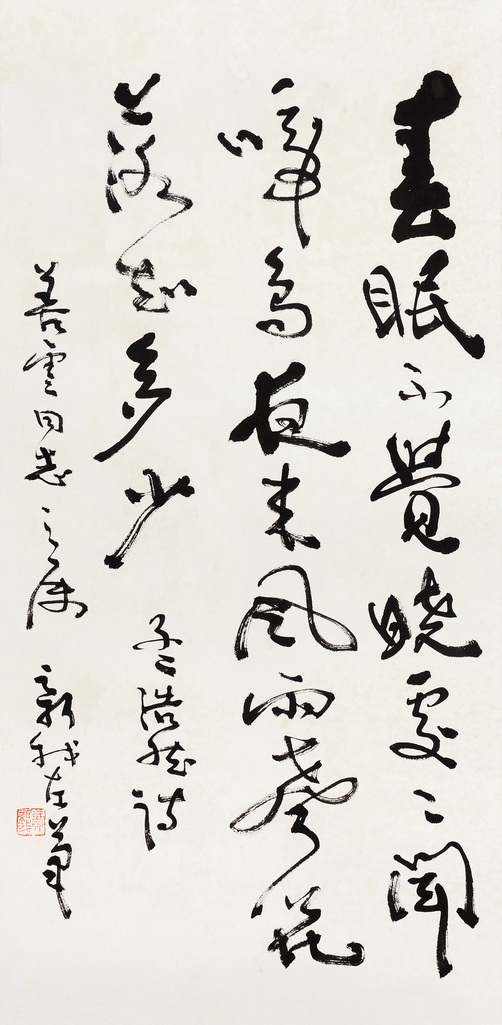 春眠不覺曉處〻聞
啼鳥夜來風雨聲花
落知多少 孟浩然詩
善雲同志之属 新我左筆